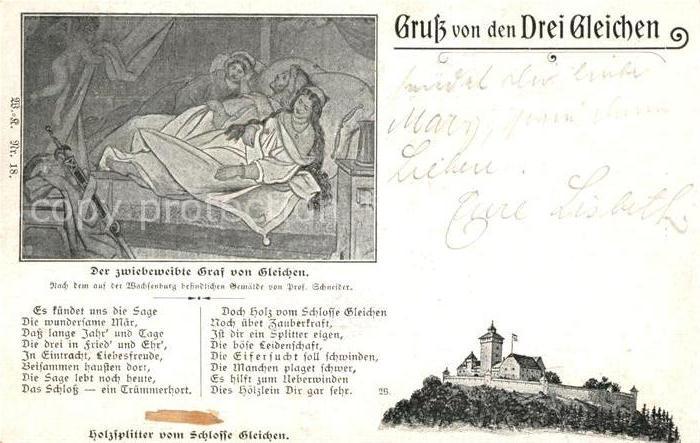 Gruß von den Drei Gleichen
sendet Dir liebe
Mary,
Lieben.
Eure Lisbeth.
W.-K. Nr. 18.
copy protection
Der zwiebeweibte Graf von Gleichen.
Nach dem auf der Wachsenburg befindlichen Gemälde von Prof. Schneider.
Es kündet uns die Sage
Die wundersame Mär,
Daß lange Jahr' und Tage
Die drei in Fried' und Ehr',
In Eintracht, Liebesfreude,
Beisammen hausten dort,
Die Sage lebt noch heute,
Das Schloß — ein Trümmerhort.
Doch Holz vom Schlosse Gleichen
Noch übet Zauberkraft,
Ist dir ein Splitter eigen,
Die böse Leidenschaft,
Die Eifersucht soll schwinden,
Die Manchen plaget schwer,
Es hilft zum Ueberwinden
Dies Hölzlein Dir gar sehr.
Holzsplitter vom Schlosse Gleichen.